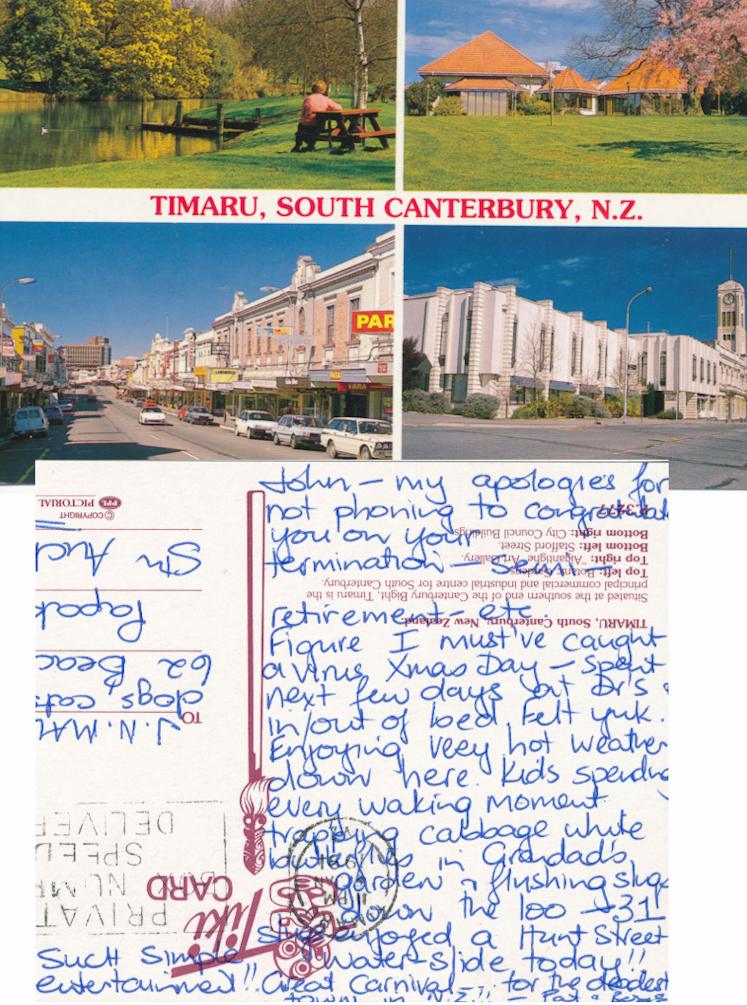 TIMARU, SOUTH CANTERBURY, N.Z.
PAR
John – my apologies for
not phoning to congratulate
you on your
termination – semi –
retirement – etc.
Figure I must've caught
a virus Xmas Day – Spent
next few days at Dr's &
in/out of bed. Felt yuk.
Enjoying very hot weather
down here. Kids spending
every waking moment
trapping cabbage white
butterflies in Grandad's
garden & flushing slugs
down the loo – 31
Slugs enjoyed a Hunt Street
Water-Slide today!!
Such Simple
entertainment!! Great Carnival – for the deadest
town in N.Z.!! –
TIMARU, South Canterbury, New Zealand.
Situated at the southern end of the Canterbury Bight, Timaru is the
principal commercial and industrial centre for South Canterbury.
Top left: Botanic Gardens.
Top right: "Aigantighe" Art Gallery.
Bottom left: Stafford Street.
Bottom right: City Council Buildings.
© COPYRIGHT
PPL PICTORIAL
TO
J.N. MA
dogs, cats
62 Beac
Papak
Sth Auc
Tiki
CARD
PRIVAT
NUM
SPEED
DELIVE